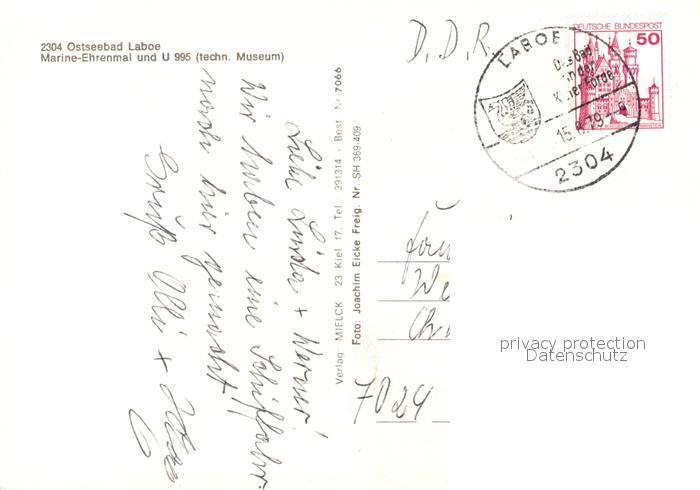 2304 Ostseebad Laboe
Marine-Ehrenmal und U 995 (techn. Museum)
D.D.R.
LABOE
Das Bad
an der
Kieler Förde
15.
79
2304
DEUTSCHE BUNDESPOST
50
Liebe Linda + Werner!
Wir haben eine Schiffahrt
nach hier gemacht
Gruß Olli +
Verlag MIELCK 23 Kiel 17, Tel. 391314 - Best. Nr. 7066
Foto: Joachim Eicke Freig. Nr. SH 369-409
Fam
We
Ch
7024
privacy protection
Datenschutz